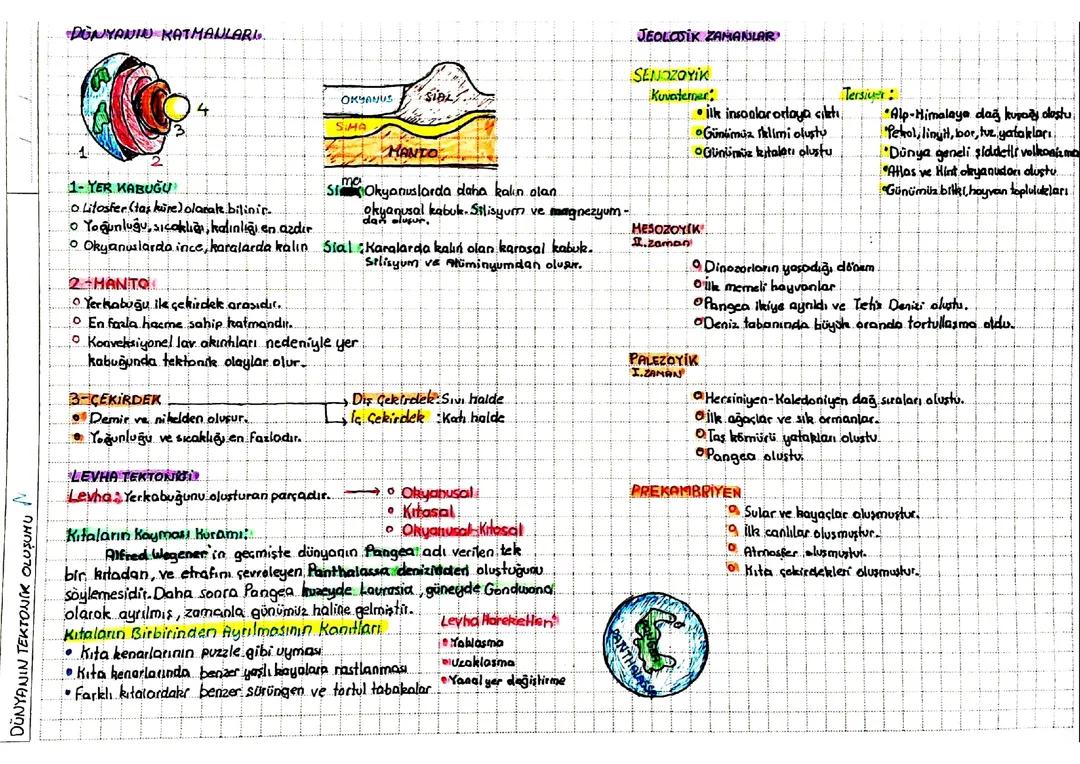 DÜNYANIN KATMANLARI
1
2
3
4
OKYANUS
SİAL
SİMA
MANTO
1- YER KABUĞU
Litosfer (taş küre) olarak bilinir.
Yoğunluğu, sıcaklığı, kalınlığı en azdır
Okyanuslarda ince, karalarda kalın
Sima: Okyanuslarda daha kalın olan
okyanusal kabuk. Silisyum ve magnezyum-
dan oluşur.
Sial: Karalarda kalın olan karasal kabuk.
Silisyum ve Alüminyumdan oluşur.
2-MANTO
Yerkabuğu ile çekirdek arasıdır.
En fazla hacme sahip katmandır.
Konveksiyonel lav akıntıları nedeniyle yer
kabuğunda tektonik olaylar olur.
3-ÇEKİRDEK
Demir ve nikelden oluşur.
Yoğunluğu ve sıcaklığı en fazladır.
Dış Çekirdek: Sıvı halde
İç Çekirdek: Katı halde
LEVHA TEKTONİĞİ
Levha: Yerkabuğunu oluşturan parçadır.
Okyanusal
Kıtasal
Okyanusal-Kıtasal
Kıtaların Kayması Kuramı:
Alfred Wegener'in geçmişte dünyanın Pangea adı verilen tek
bir kıtadan, ve etrafını çevreleyen Panthalassa denizinden oluştuğunu
söylemesidir. Daha sonra Pangea kuzeyde Laurasia, güneyde Gondwana
olarak ayrılmış, zamanla günümüz haline gelmiştir.
Kıtaların Birbirinden Ayrılmasının Kanıtları
Kıta kenarlarının puzzle gibi uyması
Kıta kenarlarında benzer yaşlı kayalara rastlanması
Farklı kıtalardaki benzer sürüngen ve tortul tabakalar
Levha Hareketleri:
Yaklaşma
Uzaklaşma
Yanal yer değiştirme
JEOLOJİK ZAMANLAR
SENOZOYİK
Kuvaterner:
İlk insanlar ortaya çıktı
Günümüz iklimi oluştu
Günümüz kıtaları oluştu
Tersiyer:
Alp-Himalaya dağ kuşağı oluştu
Petrol, linyit, bor, tuz yatakları
Dünya geneli şiddetli volkanizma
Atlas ve Hint okyanusları oluştu
Günümüz bitki, hayvan toplulukları
MESOZOYİK
II. zaman
Dinozorların yaşadığı dönem
İlk memeli hayvanlar
Pangea ikiye ayrıldı ve Tetis Denizi oluştu.
Deniz tabanında büyük oranda tortullaşma oldu.
PALEZOYİK
I. ZAMAN
Hersiniyen-Kaledoniyen dağ sıraları oluştu.
İlk ağaçlar ve sık ormanlar.
Taş kömürü yatakları oluştu
Pangea oluştu.
PREKAMBRİYEN
Sular ve kayaçlar oluşmuştur.
İlk canlılar oluşmuştur.
Atmosfer oluşmuştur.
Kıta çekirdekleri oluşmuştur.
PANTHALASSA
DÜNYANIN TEKTONİK OLUŞUMU